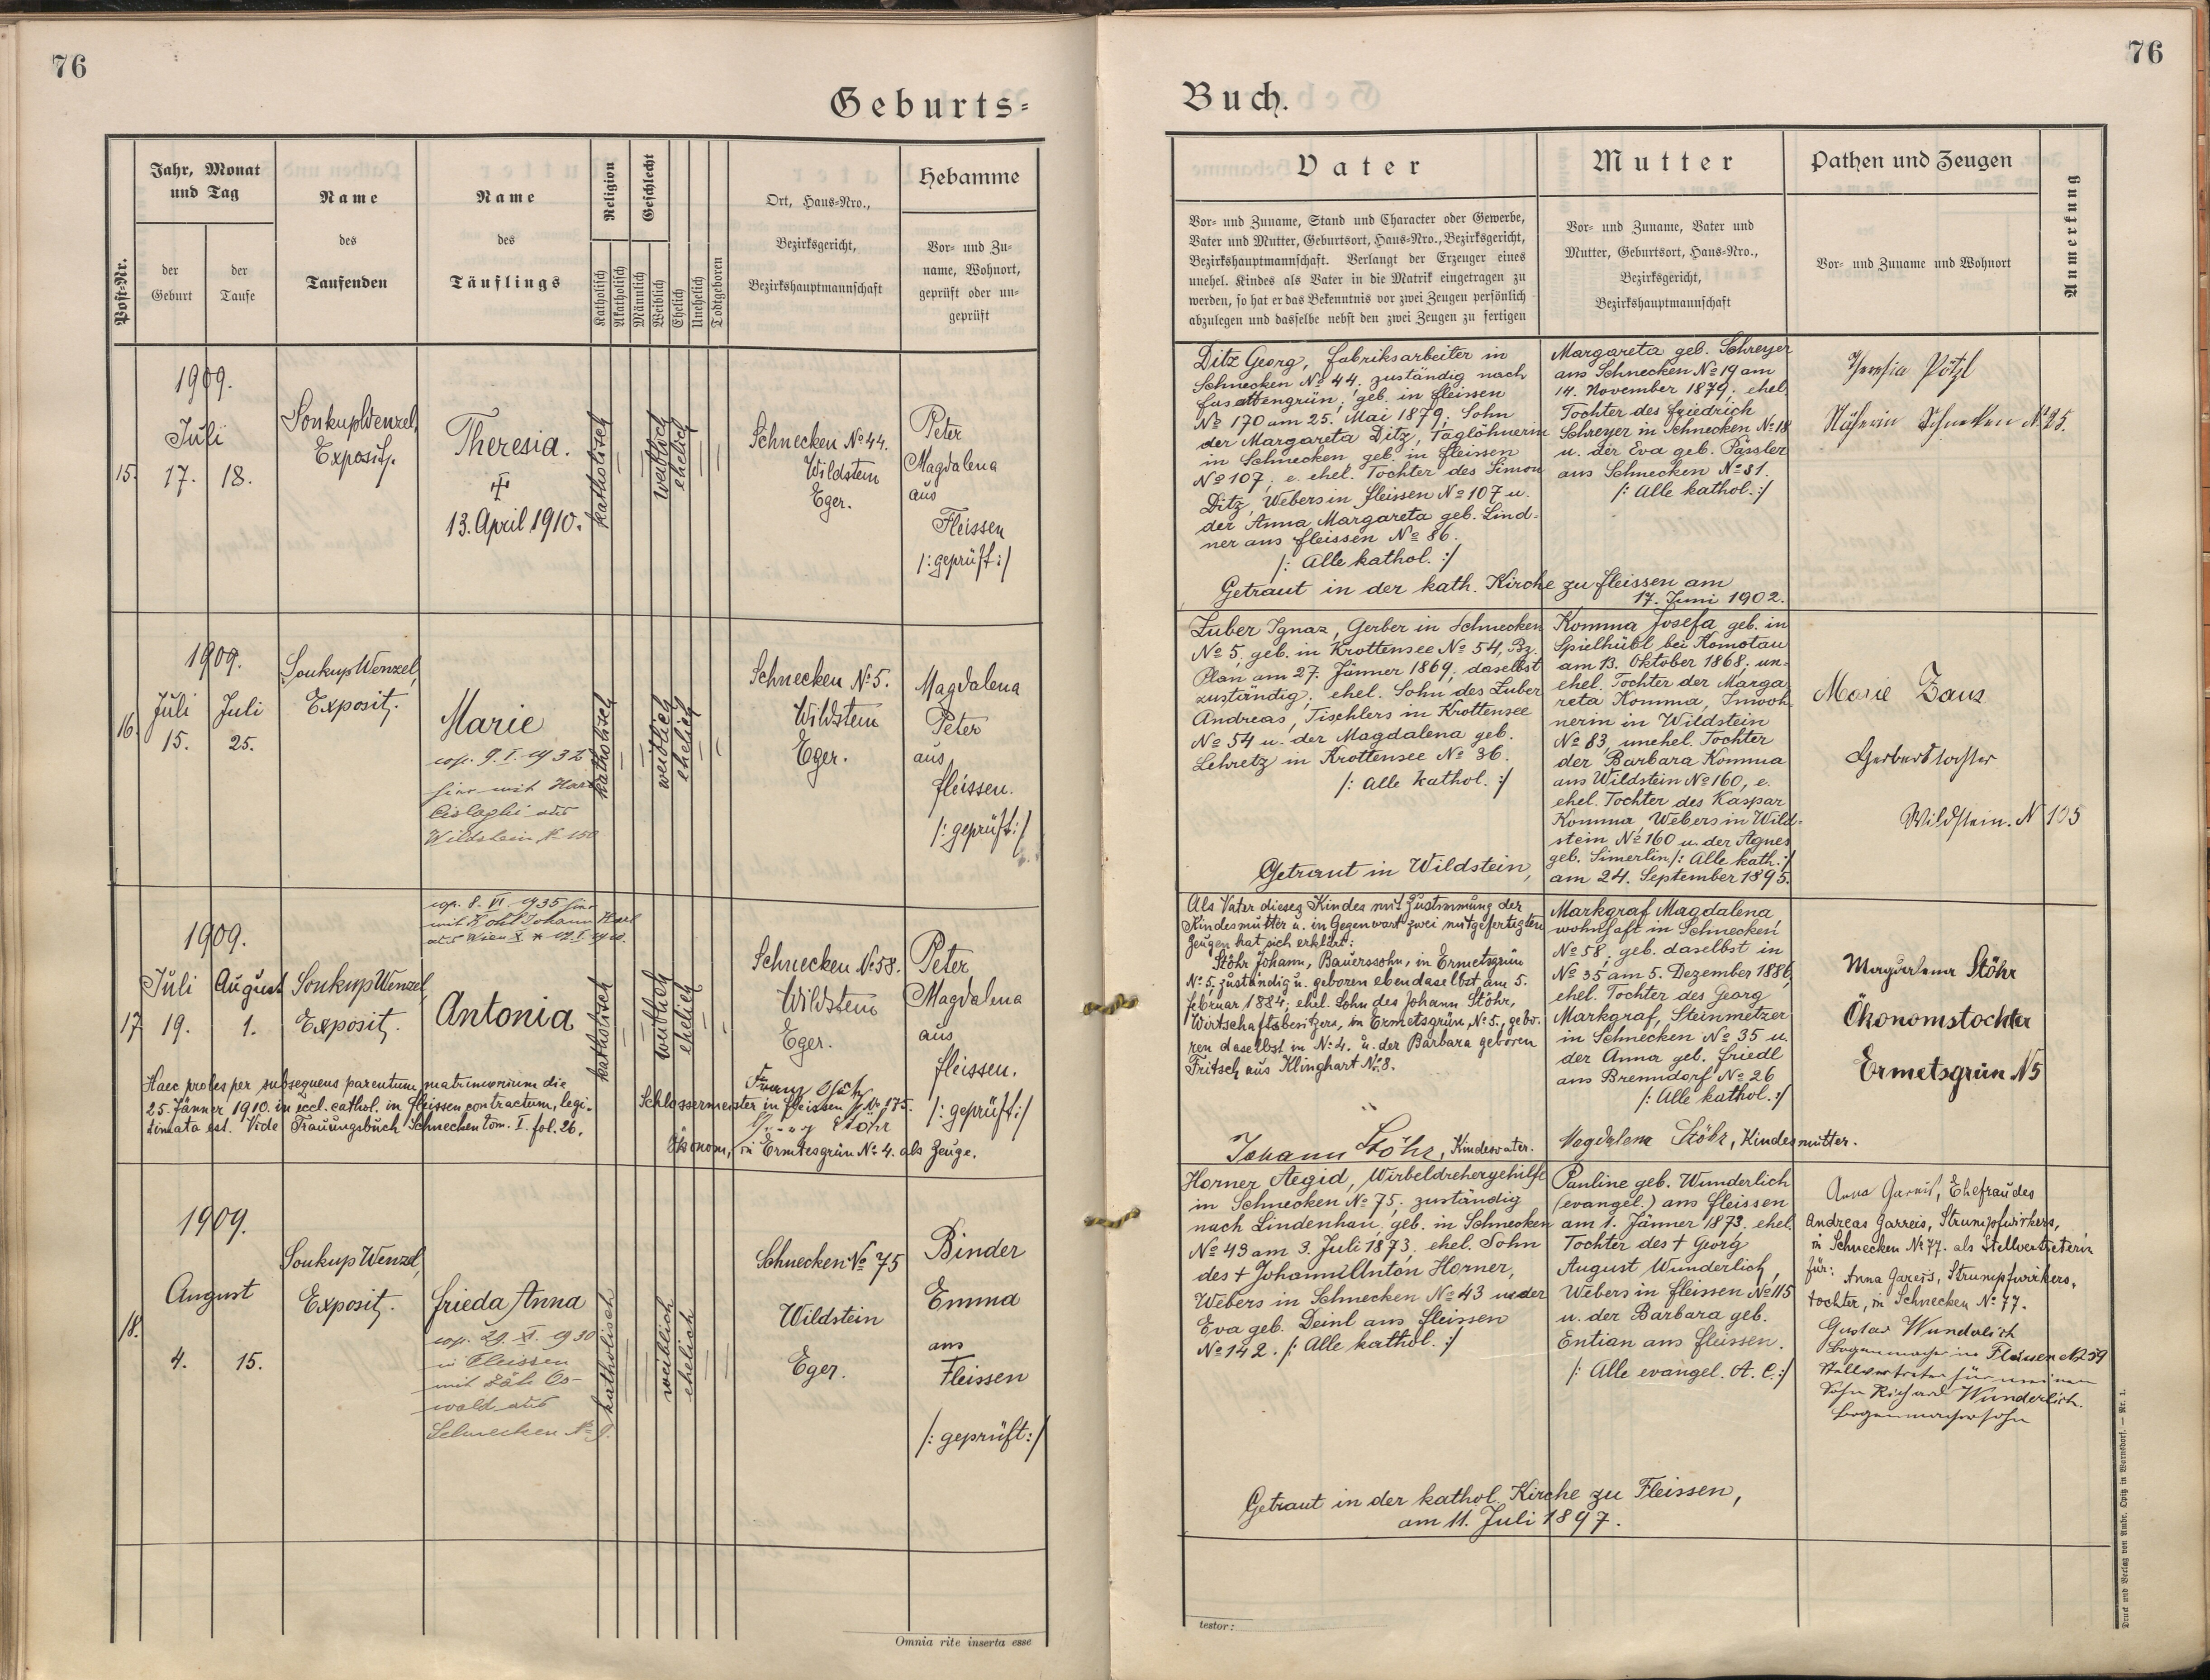 76
76
Geburts=
Buch.
Post-Nr.
Jahr, Monat
und Tag
der
Geburt
der
Taufe
Name
des
Taufenden
Name
des
Täuflings
Religion
Katholisch
Akatholisch
Geschlecht
Männlich
Weiblich
Ehelich
Unehelich
Todtgeboren
Ort, Haus-Nro.,
Bezirksgericht,
Bezirkshauptmannschaft
Hebamme
Vor- und Zu-
name, Wohnort,
geprüft oder un-
geprüft
Vater
Vor- und Zuname, Stand und Character oder Gewerbe,
Vater und Mutter, Geburtsort, Haus-Nro., Bezirksgericht,
Bezirkshauptmannschaft. Verlangt der Erzeuger eines
unehel. Kindes als Vater in die Matrik eingetragen zu
werden, so hat er das Bekenntnis vor zwei Zeugen persönlich
abzulegen und dasselbe nebst den zwei Zeugen zu fertigen
Mutter
Vor- und Zuname, Vater und
Mutter, Geburtsort, Haus-Nro.,
Bezirksgericht,
Bezirkshauptmannschaft
Pathen und Zeugen
Vor- und Zuname und Wohnort
Anmerkung
15.
1909.
Juli
17. 18.
Soukup Wenzel,
Exposit.
Theresia.
13. April 1910.
katholisch
weiblich
ehelich
Schnecken No 44.
Wildstein
Eger.
Peter
Magdalena
aus
Fleissen
/: geprüft :/
Ditz Georg, Fabriksarbeiter in
Schnecken No 44. zuständig nach
Fasattengrün; geb. in Fleissen
No 170 am 25. Mai 1879. Sohn
der Margareta Ditz, Taglöhnerin
in Schnecken geb. in Fleissen
No 107; e. ehel. Tochter des Simon
Ditz, Webers in Fleissen No 107 u.
der Anna Margareta geb. Lind-
ner aus Fleissen No 86.
/: Alle kathol. :/
Margareta geb. Schreyer
aus Schnecken No 19 am
14. November 1879; ehel.
Tochter des Friedrich
Schreyer in Schnecken No 18
u. der Eva geb. Pässler
aus Schnecken No 31.
/: Alle kathol. :/
Getraut in der kath. Kirche zu Fleissen am
17. Juni 1902.
Theresia Pötzl
Näherin Schnecken No 25.
16.
1909.
Juli Juli
15. 25.
Soukup Wenzel,
Exposit.
Marie
cop. 9. I. 1932
hier mit Karl
aus
Wildstein No 150
katholisch
weiblich
ehelich
Schnecken No 5.
Wildstein
Eger.
Magdalena
Peter
aus
Fleissen.
/: geprüft :/
Zuber Ignaz, Gerber in Schnecken
No 5, geb. in Krottensee No 54, Bz.
Plan am 27. Jänner 1869, daselbst
zuständig; ehel. Sohn des Zuber
Andreas, Tischlers in Krottensee
No 54 u. der Magdalena geb.
Lehretz in Krottensee No 36.
/: Alle kathol. :/
Komma Josefa geb. in
Spielhübl bei Komotau
am 13. Oktober 1868; un-
ehel. Tochter der Marga
reta Komma, Inwoh-
nerin in Wildstein
No 83, unehel. Tochter
der Barbara Komma
aus Wildstein No 160, e.
ehel. Tochter des Kaspar
Komma Webers in Wild-
stein No 160 u. der Agnes
geb. Simerlin /: Alle kath. :/
Getraut in Wildstein, am 24. September 1895.
Marie Zaus
Gerberstochter
Wildstein. N 105
17
1909.
Juli August
19. 1.
Soukup Wenzel,
Exposit.
cop. 8. VI. 1935 hier
mit Kohl Johann Karl
aus Wien X
Antonia
katholisch
weiblich
ehelich
Schnecken No 58.
Wildstein
Eger.
Peter
Magdalena
aus
Fleissen.
/: geprüft :/
Haec proles per subsequens parentum matrimonium die
25. Jänner 1910. in eccl. cathol. in Fleissen contractum, legi-
timata est. Vide Trauungsbuch Schnecken tom. I. fol. 26.
Franz Stöhr
Schlossermeister in Fleissen No 175.
Stöhr
Ökonom, in Ermetesgrün No 4. als Zeuge.
Als Vater dieses Kindes mit Zustimmung der
Kindesmutter u. in Gegenwart zwei mitgefertigten
Zeugen hat sich erklärt:
Stöhr Johann, Bauerssohn, in Ermetsgrün
No 5. zuständig u. geboren ebendaselbst am 5.
Februar 1884; ehel. Sohn des Johann Stöhr,
Wirtschaftsbesitzers, in Ermetsgrün, No 5., gebo-
ren daselbst in No 4. u. der Barbara geboren
Fritsch aus Klinghart No 8.
Johann Stöhr, Kindesvater.
Markgraf Magdalena,
wohnhaft in Schnecken
No 58, geb. daselbst in
No 35 am 5. Dezember 1886,
ehel. Tochter des Georg
Markgraf, Steinmetzer
in Schnecken No 35 u.
der Anna geb. Friedl
aus Brenndorf No 26
/: Alle kathol. :/
Magdalena Stöhr, Kindesmutter.
Magdalena Stöhr
Ökonomstochter
Ermetsgrün N5
18.
1909.
August
4. 15.
Soukup Wenzel,
Exposit.
Frieda Anna
cop. 29. XI. 1930
in Fleissen
mit Zäh Os-
wald aus
Schnecken No 9.
katholisch
weiblich
ehelich
Schnecken No 75
Wildstein
Eger.
Binder
Emma
aus
Fleissen
/: geprüft :/
Horner Aegid, Wirbeldrehergehilfe
in Schnecken No 75; zuständig
nach Lindenhau, geb. in Schnecken
No 43 am 3. Juli 1873, ehel. Sohn
des + Johann Anton Horner,
Webers in Schnecken No 43 u. der
Eva geb. Deinl aus Fleissen
No 142. /: Alle kathol. :/
Pauline geb. Wunderlich
(evangel.) aus Fleissen
am 1. Jänner 1873. ehel.
Tochter des + Georg
August Wunderlich,
Webers in Fleissen No 115
u. der Barbara geb.
Entian aus Fleissen.
/: Alle evangel. A. C. :/
Anna Gareis, Ehefrau des
Andreas Garreis, Strumpfwirkers,
in Schnecken No 77. als Stellvertreterin
für: Anna Gareis, Strumpfwirkers-
tochter, in Schnecken No 77.
Gustav Wunderlich
Bogenmacher in Fleissen No 259
Stellvertreter für meinen
Sohn Richard Wunderlich.
Bogenmacherssohn
Getraut in der kathol. Kirche zu Fleissen,
am 11. Juli 1897.
Omnia rite inserta esse
testor:
Druck und Verlag von Ambr. Opitz in Warnsdorf. — Nr. 1.